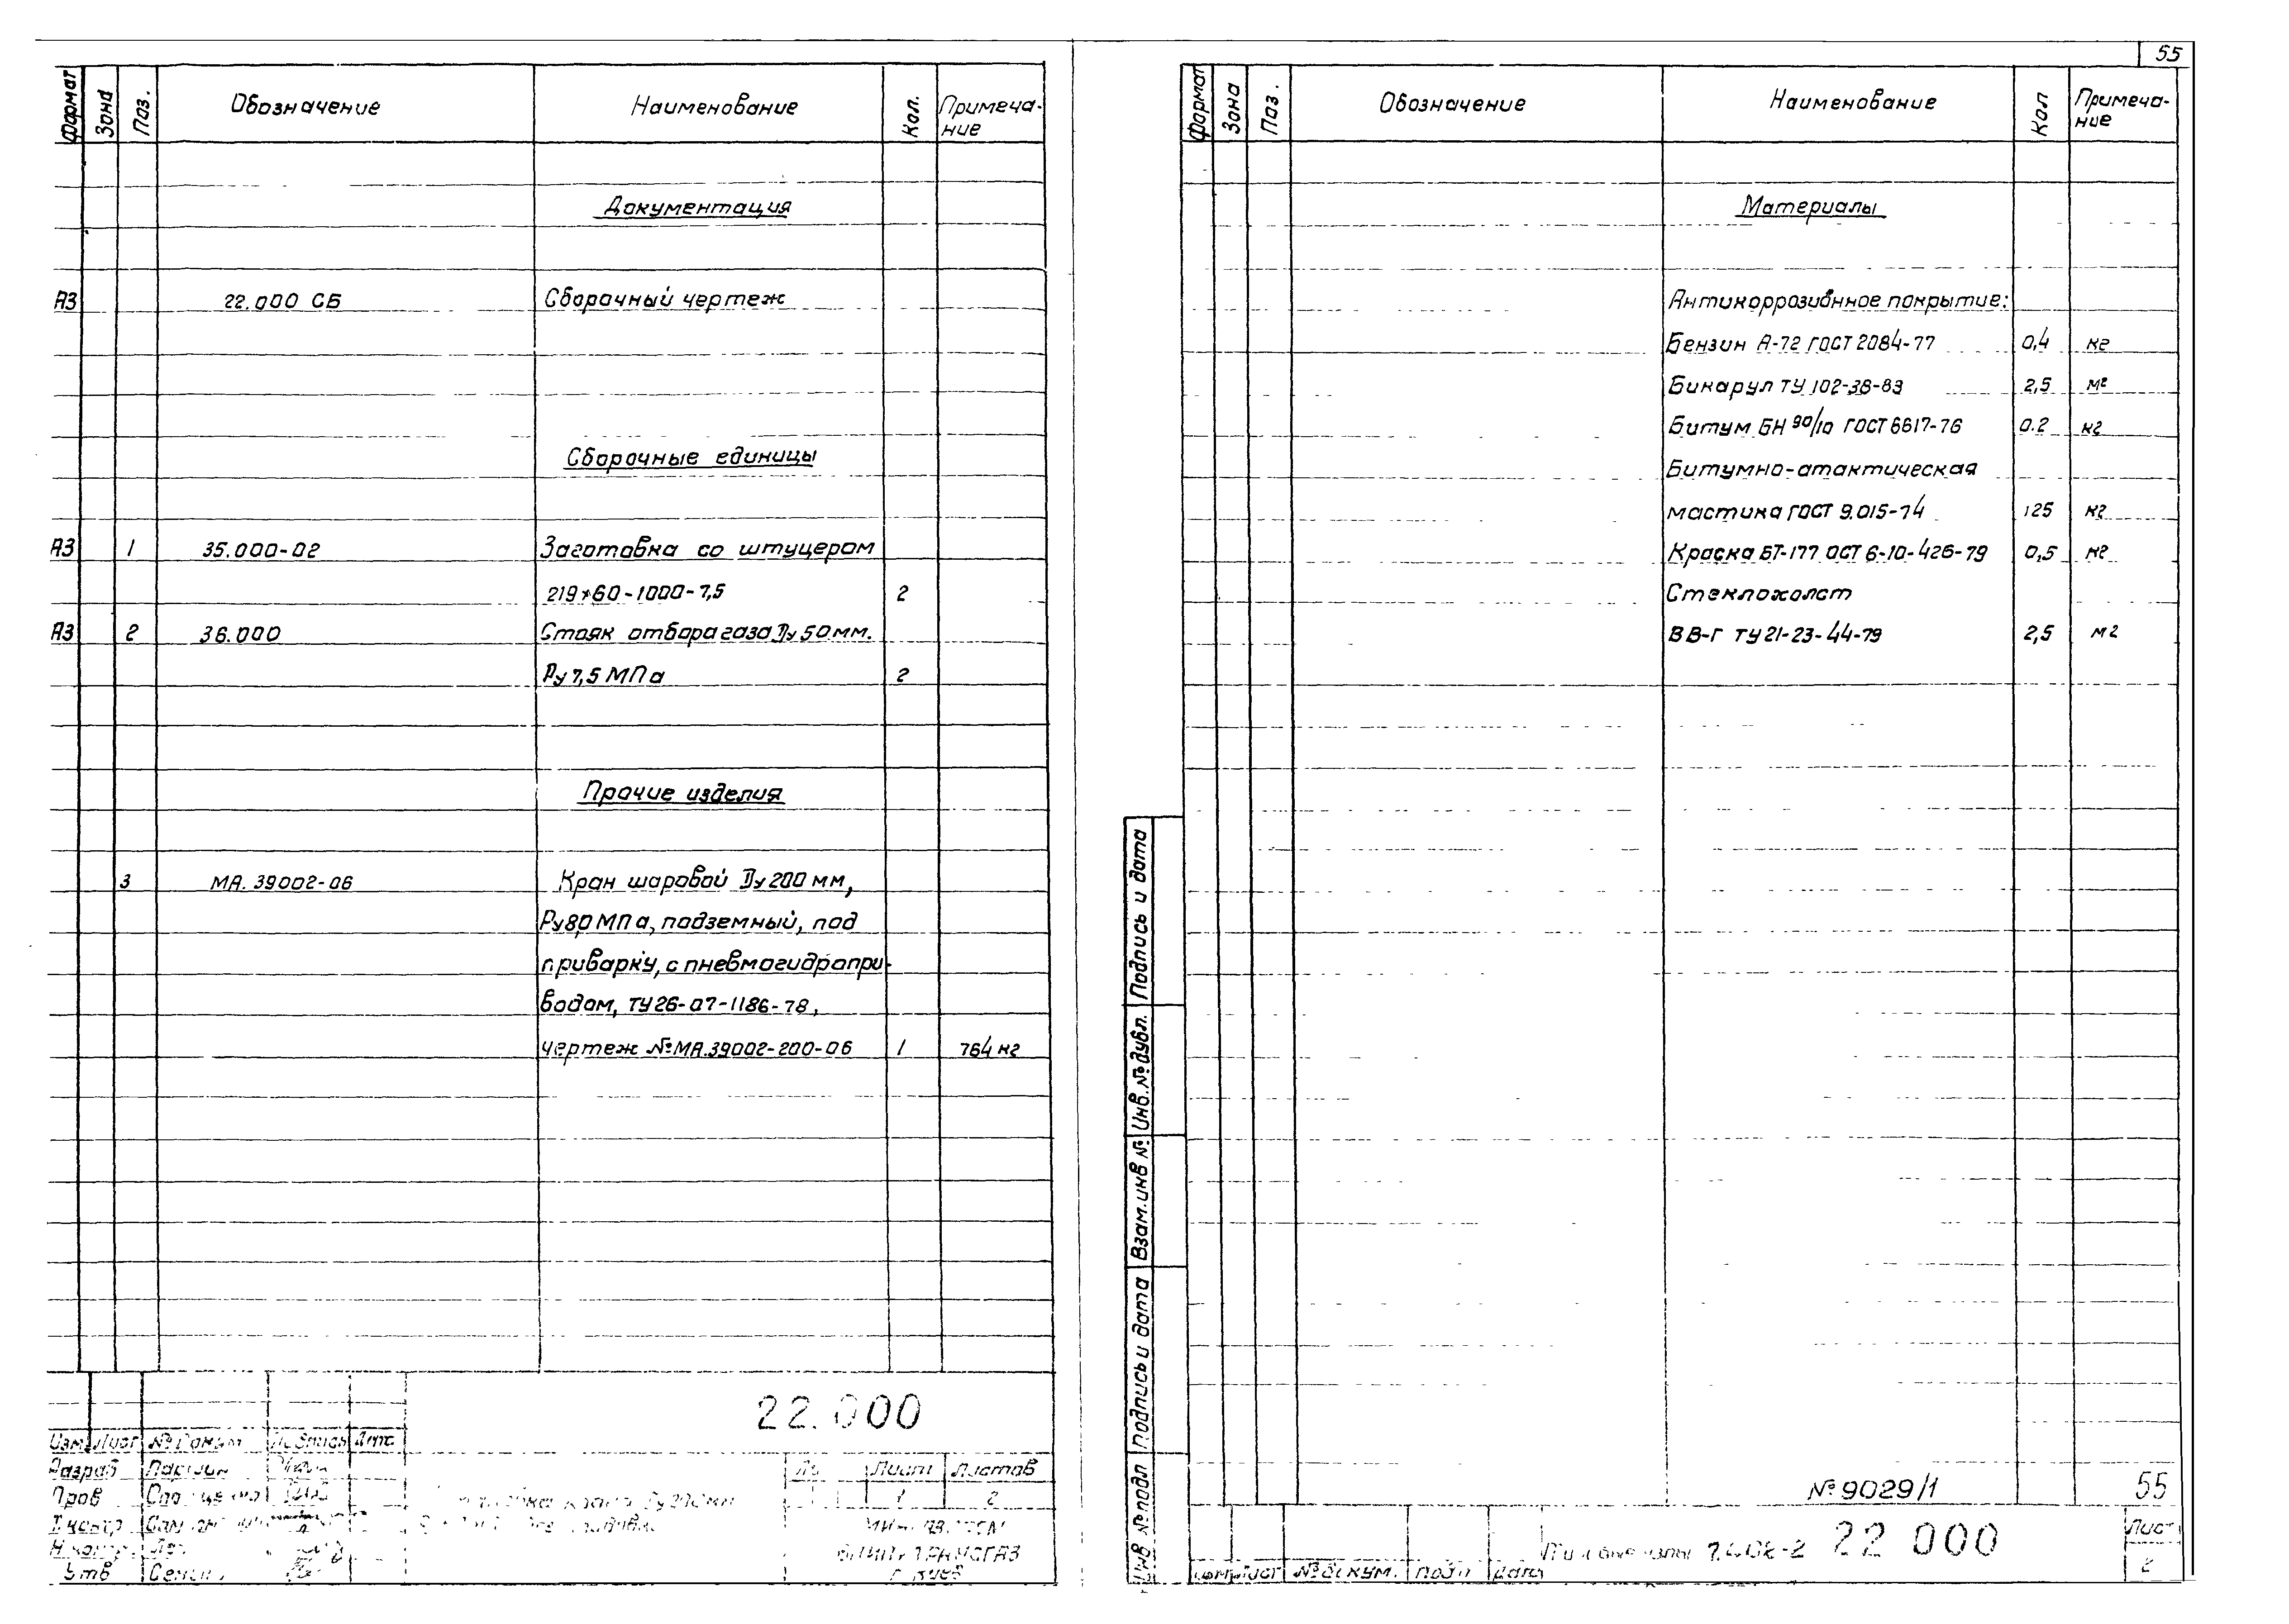 55
Формат Зона Поз. Обозначение Наименование Кол. Примеча-
ние
Документация
А3 22.000 СБ Сборочный чертеж
Сборочные единицы
А3 1 35.000-02 Заготовка со штуцером
219×60-1000-7,5 2
А3 2 36.000 Стояк отбора газа Ду 50 мм.
Ру 7,5 МПа 2
Прочие изделия
3 МА. 39002-06 Кран шаровой Ду 200 мм,
Ру 8,0 МПа, подземный, под
приварку, с пневмогидропри-
водом, ТУ 26-07-1186-78,
чертеж № МА.39002-200-06 1 764 кг
22.000
Изм. Лист № докум. Подпись Дата
Разраб
Пров
Т. контр
Н. контр.
Утв
Лист Листов
1 2
крана Ду 200 мм
Формат Зона Поз. Обозначение Наименование Кол Примеча-
ние
Материалы
Антикоррозионное покрытие:
Бензин А-72 ГОСТ 2084-77 0,4 кг
Бикарул ТУ 102-38-83 2,5 м²
Битум БН 90/10 ГОСТ 6617-76 0.2 кг
Битумно-атактическая
мастика ГОСТ 9.015-74 125 кг
Краска БТ-177 ОСТ 6-10-426-79 0,5 кг
Стеклохолст
ВВ-Г ТУ 21-23-44-79 2,5 м2
Подпись и дата
Инв. № дубл.
Взам. инв №
Подпись и дата
Инв № подл
№ 9029/1 55
22 000
Лист
2
Изм. Лист № докум. подп дата